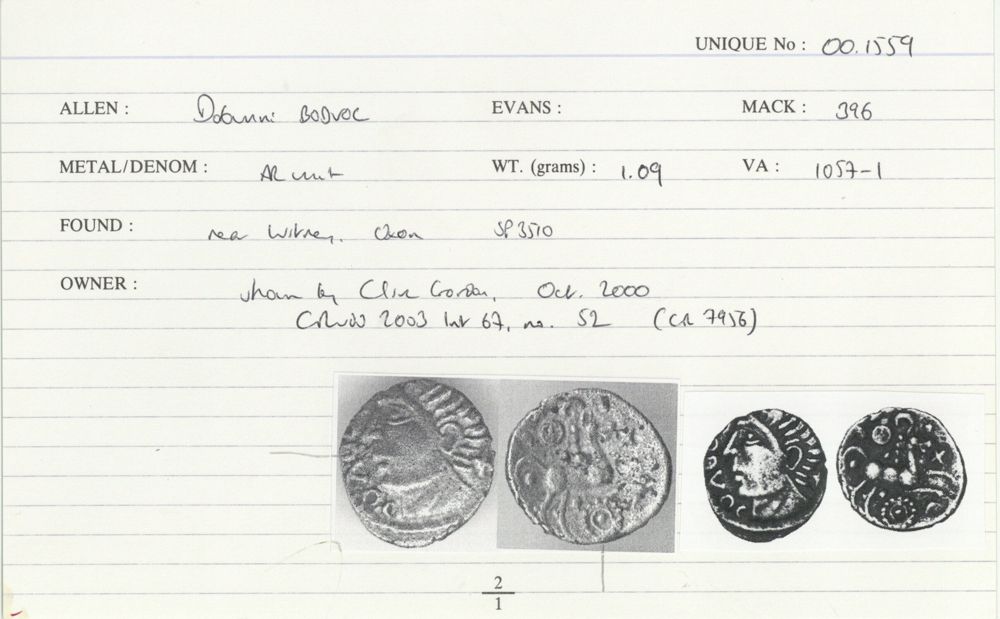 UNIQUE No : 00.1559
ALLEN : Dobunni BODVOC EVANS : MACK : 396
METAL/DENOM : AR unit WT. (grams) : 1.09 VA : 1057-1
FOUND : near Witney, Oxon SP3510
OWNER : shown by Clive Oct. 2000
2003 67, no. 52 (CR 7956)
2
1